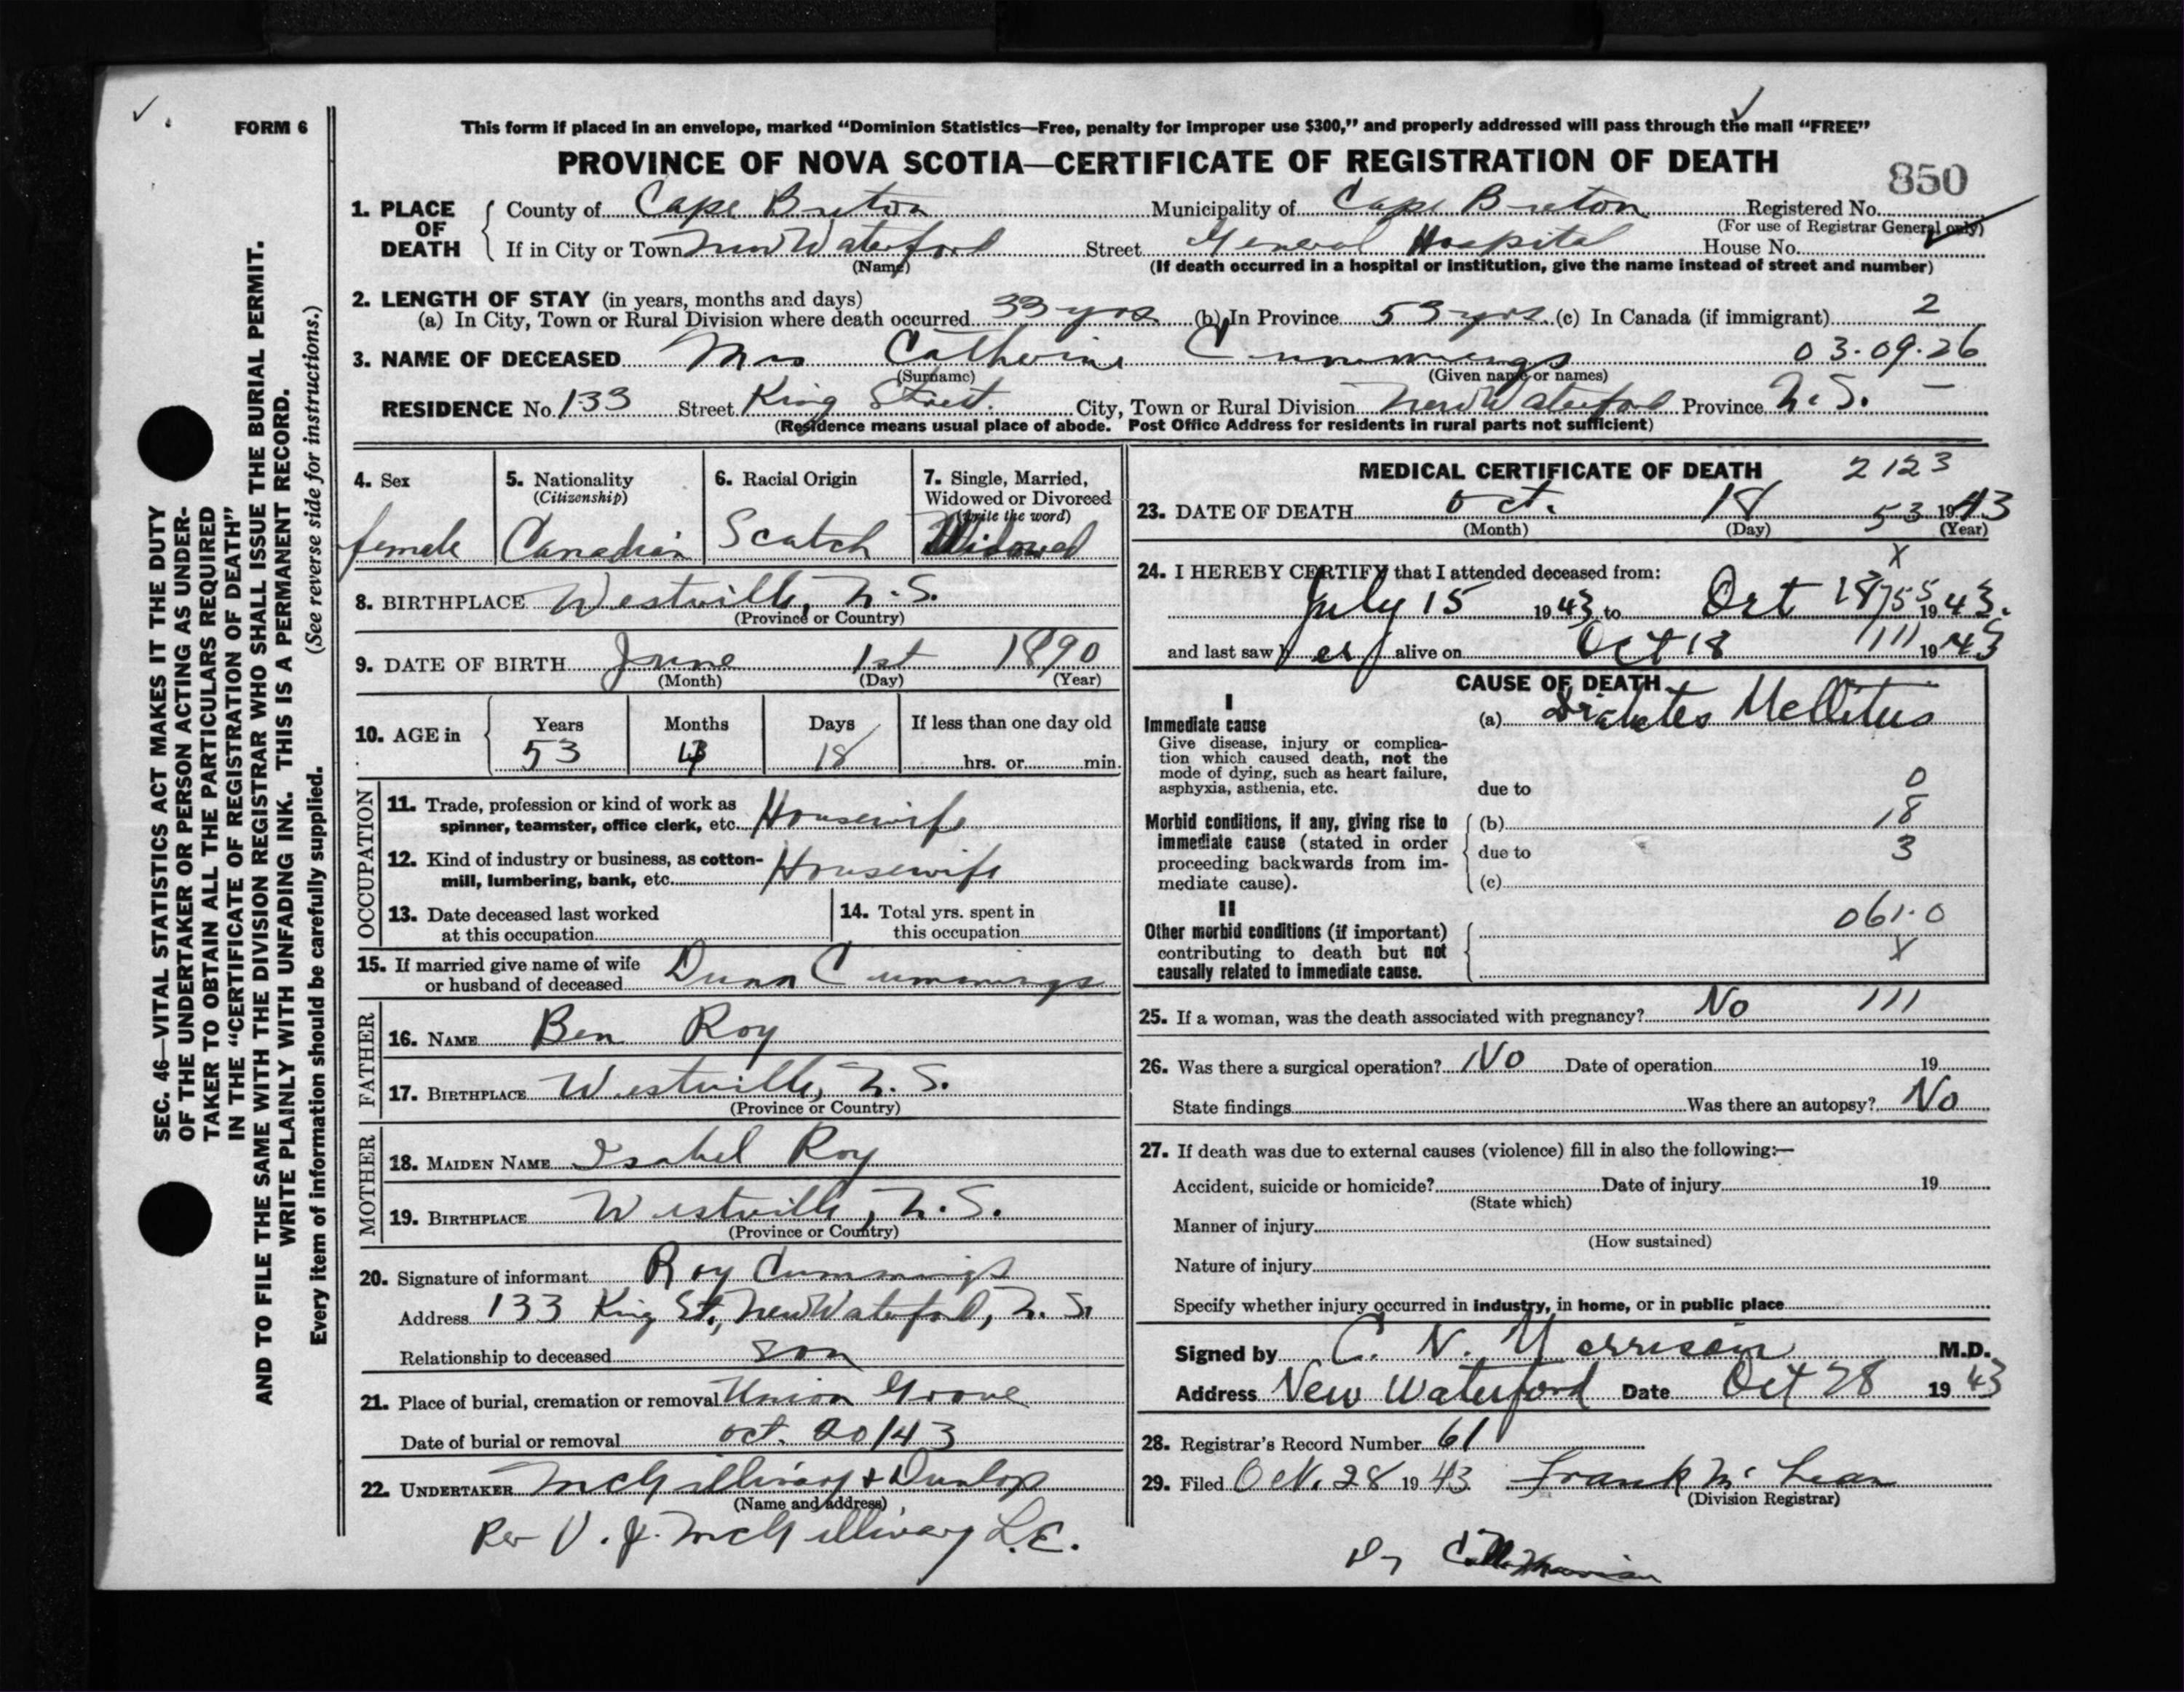 FORM 6
This form if placed in an envelope, marked “Dominion Statistics—Free, penalty for improper use $300,” and properly addressed will pass through the mail “FREE”
PROVINCE OF NOVA SCOTIA—CERTIFICATE OF REGISTRATION OF DEATH
850
1. PLACE OF DEATH { County of Cape Breton Municipality of Cape Breton Registered No.
(For use of Registrar General only)
If in City or Town New Waterford Street General Hospital House No.
(Name) (If death occurred in a hospital or institution, give the name instead of street and number)
2. LENGTH OF STAY (in years, months and days)
(a) In City, Town or Rural Division where death occurred 33 yrs (b) In Province 53 yrs (c) In Canada (if immigrant) 2
3. NAME OF DECEASED Mrs Catherine Cummings 03·09·26
(Surname) (Given name or names)
RESIDENCE No. 133 Street King Street. City, Town or Rural Division New Waterford Province N.S. —
(Residence means usual place of abode. Post Office Address for residents in rural parts not sufficient)
4. Sex
female
5. Nationality
(Citizenship)
Canadian
6. Racial Origin
Scotch
7. Single, Married,
Widowed or Divorced
(Write the word)
Widowed
8. BIRTHPLACE Westville, N.S.
(Province or Country)
9. DATE OF BIRTH June 1st 1890
(Month) (Day) (Year)
10. AGE in { Years Months Days If less than one day old
53 4 18 hrs. or min.
OCCUPATION
11. Trade, profession or kind of work as
spinner, teamster, office clerk, etc. Housewife
12. Kind of industry or business, as cotton-
mill, lumbering, bank, etc. Housewife
13. Date deceased last worked
at this occupation
14. Total yrs. spent in
this occupation
15. If married give name of wife
or husband of deceased Dunn Cummings
FATHER
16. NAME Ben Roy
17. BIRTHPLACE Westville, N.S.
(Province or Country)
MOTHER
18. MAIDEN NAME Isabel Roy
19. BIRTHPLACE Westville, N.S.
(Province or Country)
20. Signature of informant Roy Cummings
Address 133 King St., New Waterford, N.S.
Relationship to deceased son
21. Place of burial, cremation or removal Union Grove
Date of burial or removal oct. 20/43
22. UNDERTAKER McGillivary & Dunlop
(Name and address)
Per V. J. McGillivary L.E.
MEDICAL CERTIFICATE OF DEATH 2123
23. DATE OF DEATH oct. 18 53 1943
(Month) (Day) (Year)
X
24. I HEREBY CERTIFY that I attended deceased from:
July 15 1943 to Oct 18 755 1943.
and last saw her alive on Oct 18 111 1943
CAUSE OF DEATH
I
Immediate cause
Give disease, injury or complica-
tion which caused death, not the
mode of dying, such as heart failure,
asphyxia, asthenia, etc.
(a) Diabetes Mellitus
due to 0
Morbid conditions, if any, giving rise to
immediate cause (stated in order
proceeding backwards from im-
mediate cause).
(b) 18
due to 3
(c)
II
Other morbid conditions (if important)
contributing to death but not
causally related to immediate cause.
061·0
X
25. If a woman, was the death associated with pregnancy? No 111
26. Was there a surgical operation? No Date of operation 19
State findings Was there an autopsy? No
27. If death was due to external causes (violence) fill in also the following:—
Accident, suicide or homicide? Date of injury 19
(State which)
Manner of injury
(How sustained)
Nature of injury
Specify whether injury occurred in industry, in home, or in public place
Signed by C. N. Morrison M.D.
Address New Waterford Date Oct 28 1943
28. Registrar's Record Number 61
29. Filed Oct. 28 1943 Frank McLean
(Division Registrar)
Dr
SEC. 46—VITAL STATISTICS ACT MAKES IT THE DUTY
OF THE UNDERTAKER OR PERSON ACTING AS UNDER-
TAKER TO OBTAIN ALL THE PARTICULARS REQUIRED
IN THE “CERTIFICATE OF REGISTRATION OF DEATH”
AND TO FILE THE SAME WITH THE DIVISION REGISTRAR WHO SHALL ISSUE THE BURIAL PERMIT.
WRITE PLAINLY WITH UNFADING INK. THIS IS A PERMANENT RECORD.
Every item of information should be carefully supplied. (See reverse side for instructions.)